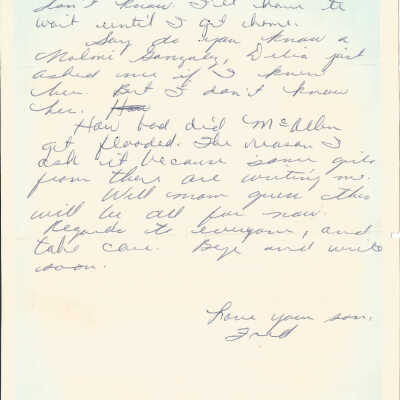 don't know. I'll have to
wait until I get home.
Say do you know a
Gonzalez, Delia just
asked me if I knew
her. But I don't know
her.
How bad did McAllen
get flooded. The reason I
ask it because some girls
from there are writing me.
Well mom guess this
will be all for now.
Regards to everyone, and
take care. Bye and write
soon.
Love your son,
Fred